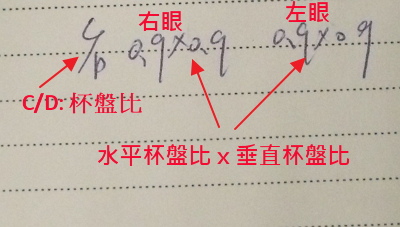 右眼 左眼
C/D 0.9x0.9 0.9x0.9
C/D: 杯盤比
水平杯盤比 x 垂直杯盤比